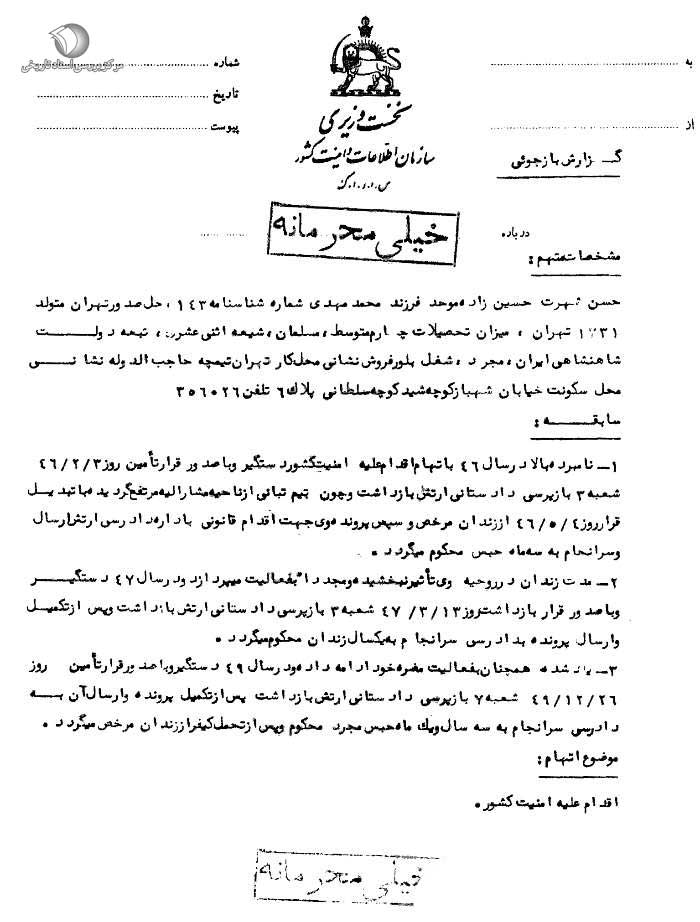 مرکز بررسی اسناد تاریخی
به
شماره
تاریخ
از
پیوست
نخست وزیری
سازمان اطلاعات و امنیت کشور
س.ا.و.ا.ک
گـزارش بازجوئی
خیلی محرمانه
درباره
مشخصات متهم :
حسن شهرت حسین زاده موحد فرزند محمد مهدی شماره شناسنامه ۱۴۳ ، محل صدور تهران متولد
۱۳۳۱ تهران ، میزان تحصیلات چهارم متوسط ، مسلمان ، شیعه اثنی عشری ، تبعه دولـــت
شاهنشاهی ایران ، مجرد ، شغل بلور فروش نشانی محل کار تهران تیمچه حاجب الدوله نشانـــی
محل سکونت خیابان شهباز کوچه شید کوچه سلطانی پلاک ۶ تلفن ۳۵۶۰۲۶
سابقــــه :
۱ـ نامبرده بالا در سال ۴۶ باتهام اقدام علیه امنیت کشور دستگیر و با صدور قرار تأمین روز ۴۶/۲/۳
شعبه ۳ بازپرسی دادستانی ارتش بازداشت و چون بیم تبانی از ناحیه مشارالیه مرتفع گردیده با تبدیـل
قرار روز ۴۶/۵/۴ از زندان مرخص و سپس پرونده وی جهت اقدام قانونی باداره دادرسی ارتش ارسال
و سرانجام به سه ماه حبس محکوم میگردد .
۲ـ مدت زندان در روحیه وی تأثیر نبخشیده و مجددا" بفعالیت میپردازد و در سال ۴۷ دستگیـــر
و با صدور قرار بازداشت روز ۴۷/۳/۱۳ شعبه ۳ بازپرسی دادستانی ارتش بازداشت و پس از تکمیل
و ارسال پرونده بدادرسی سرانجام به یکسال زندان محکوم میگردد .
۳ـ یاد شده همچنان بفعالیت مضره خود ادامه داده و در سال ۴۹ دستگیر و با صدور قرار تأمین روز
۴۹/۱۲/۲۶ شعبه ۷ بازپرسی دادستانی ارتش بازداشت پس از تکمیل پرونده و ارسال آن بـــه
دادرسی سرانجام به سه سال و یک ماه حبس مجرد محکوم و پس از تحمل کیفر از زندان مرخص میگردد .
موضوع اتهام :
اقدام علیه امنیت کشور .
خیلی محرمانه